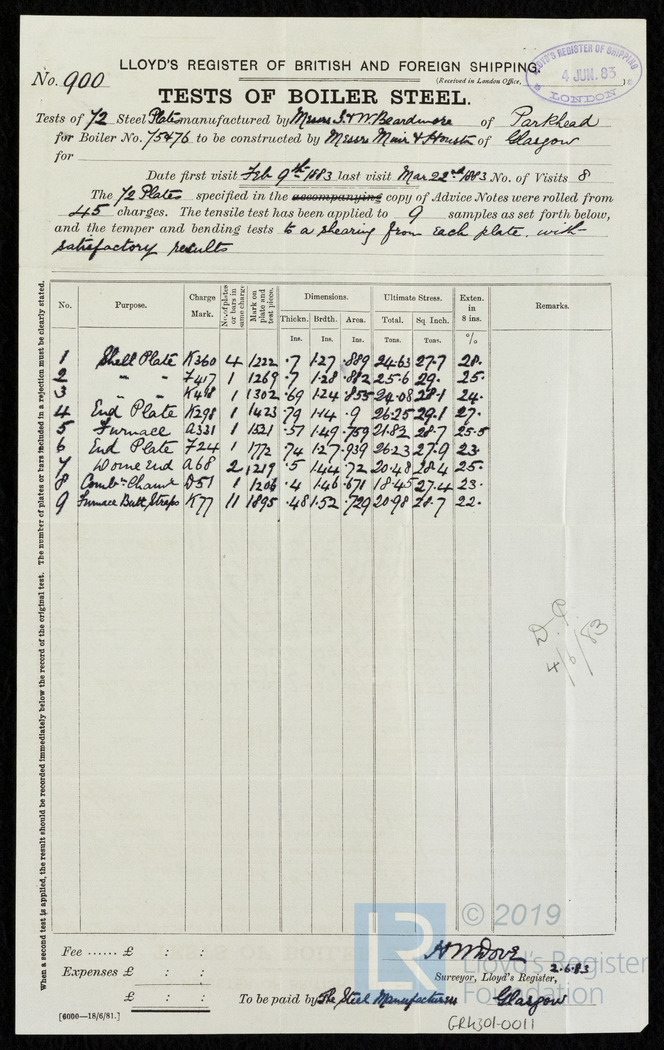 LLOYD'S REGISTER OF BRITISH AND FOREIGN SHIPPING.
No. 900
(Received in London Office, 18
LLOYD'S REGISTER OF SHIPPING
4 JUN. 83
LONDON
TESTS OF BOILER STEEL.
Tests of 72 Steel Plates manufactured by Messrs I & W Beardmore of Parkhead
for Boiler No. 75476 to be constructed by Messrs Muir & Houston of Glasgow
for
Date first visit Feb 9th 1883 last visit Mar 22nd 1883 No. of Visits 8
The 72 Plates specified in the accompanying copy of Advice Notes were rolled from
45 charges. The tensile test has been applied to 9 samples as set forth below,
and the temper and bending tests to a shearing from each plate. with
satisfactory results
No. Purpose. Charge Mark. No. of plates or bars in same charge Mark on plate and test piece. Dimensions. Ultimate Stress. Exten. in 8 ins. Remarks.
Thickn. Brdth. Area. Total. Sq. Inch.
Ins. Ins. Ins. Tons. Tons. %
1 Shell Plate K360 4 1222 .7 1.27 .889 24.63 27.7 28.
2 " " F417 1 1269 .7 1.28 .882 25.6 29. 25.
3 " " K498 1 1302 .69 1.24 .855 24.08 28.1 24.
4 End Plate K298 1 1423 .79 1.14 .9 26.25 29.1 27.
5 Furnace A331 1 1521 .51 1.49 .759 21.82 28.7 25.5
6 End Plate F24 1 1772 .74 1.27 .939 26.23 27.9 23.
7 Dome End A68 2 1219 .5 1.44 .72 20.48 28.4 25.
8 Combn Chamr D51 1 1206 .4 1.46 .671 18.45 27.4 23.
9 Furnace Butt Straps K77 11 1895 .48 1.52 .729 20.98 28.7 22.
When a second test is applied, the result should be recorded immediately below the record of the original test. The number of plates or bars included in a rejection must be clearly stated.
4/6/83
Fee ...... £ : :
Expenses £ : :
£ : :
H W Dove
Surveyor, Lloyd's Register,
2.6.83
To be paid by The Steel Manufacturers Glasgow
[6000—18/6/81.]
GRK301-0011
LR
© 2019
Lloyd's Register
Foundation